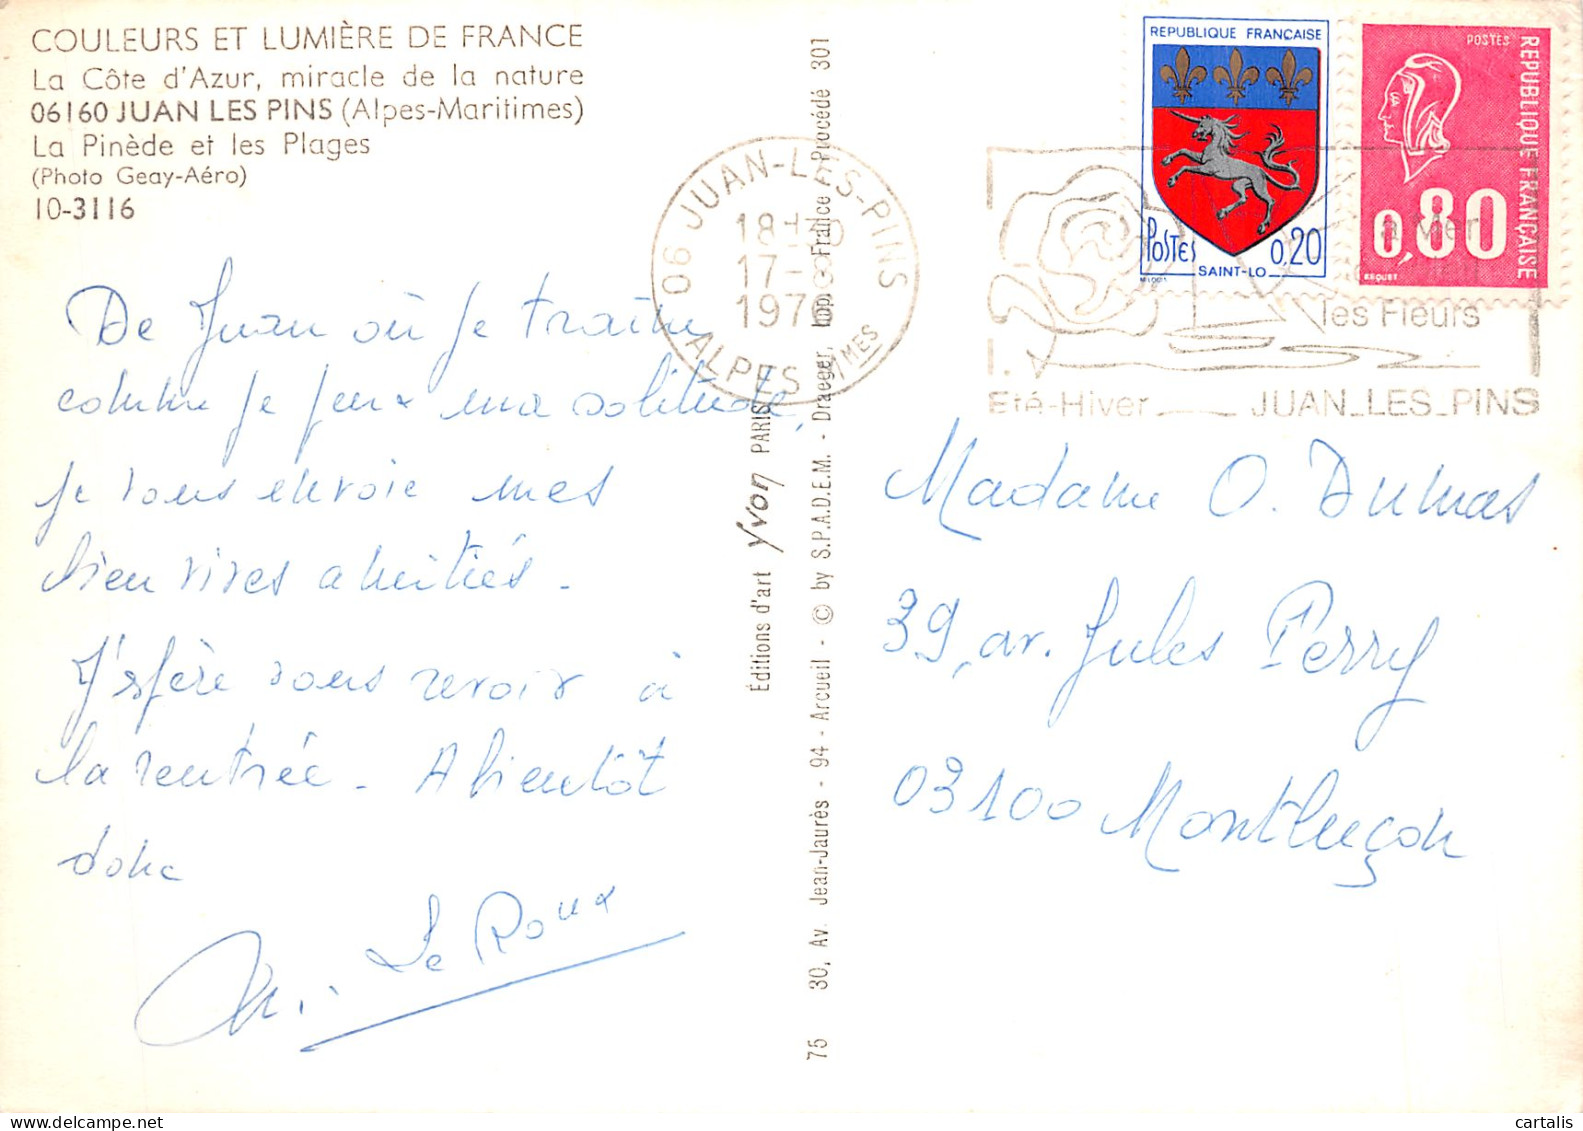 COULEURS ET LUMIÈRE DE FRANCE
La Côte d'Azur, miracle de la nature
06160 JUAN LES PINS (Alpes-Maritimes)
La Pinède et les Plages
(Photo Geay-Aéro)
10-3116
De Juan où je traîne
comme je peux ma solitude,
je vous envoie mes
bien vives amitiés -
J'espère vous revoir à
la rentrée - A bientôt
donc
M. Le Roux
Éditions d'art Yvon PARIS
75 30, Av. Jean-Jaurès - 94 - Arcueil - © by S.P.A.D.E.M. - Draeger, Imp. France Procédé 301
06 JUAN-LES-PINS
17-
1976
ALPES Mmes
REPUBLIQUE FRANÇAISE
POSTES 0,20
SAINT-LO
POSTES
REPUBLIQUE FRANÇAISE
0,80
BEQUET
la Mer
les Fleurs
Eté-Hiver JUAN_LES_PINS
Madame O. Dumas
39, av. Jules Ferry
03100 Montluçon
cartalis